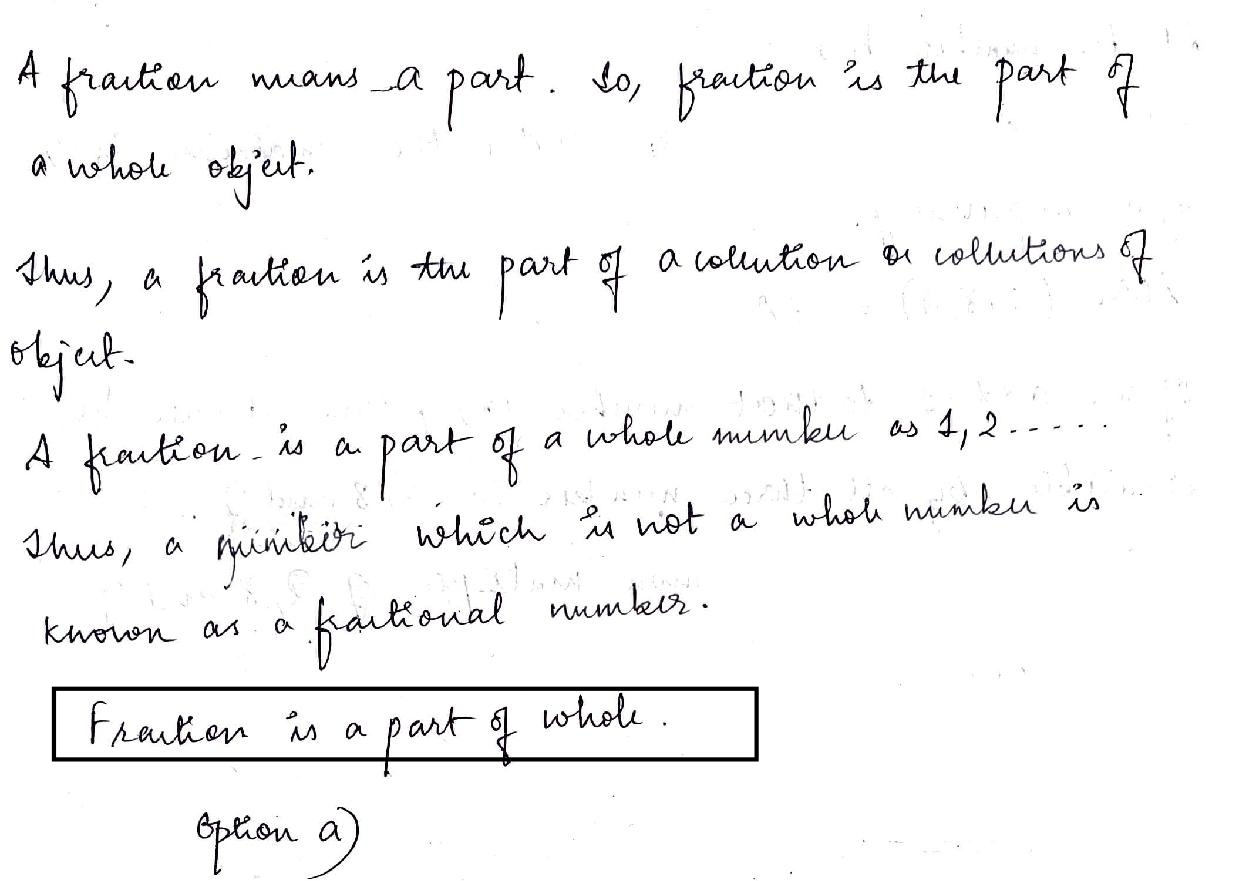 A fraction means a part. So, fraction is the part of
a whole object.
Thus, a fraction is the part of a collection or collections of
object.
A fraction is a part of a whole number as 1, 2 .....
Thus, a number which is not a whole number is
known as a fractional number.
Fraction is a part of whole.
Option a)